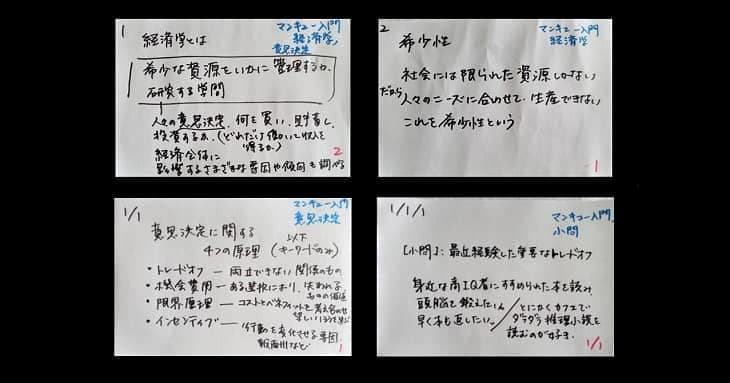 1
マンキュー入門
経済学,
意思決定
経済学とは
希少な資源をいかに管理するか、
研究する学問
人々の意思決定、何を買い、貯蓄し、
投資するか、(どれだけ働いて収入を
得るか。)
経済全体に
影響するさまざまな要因や傾向も調べる
2
2
マンキュー入門
経済学
希少性
社会には限られた資源しかない
だから人々のニーズに合わせて、生産できない
これを希少性という
1
1/1
マンキュー入門
意思決定
意思決定に関する
4つの原理 (以下キーワードのみ)
・トレードオフ — 両立できない関係のもの
・機会費用 — ある選択により、失われる、
ものの価値
・限界原理 — コストとベネフィットを
・インセンティブ — 行動を変化させる要因、
報酬など
1
1/1/1
マンキュー入門、
小問
[小問]: 最近経験した重要なトレードオフ
身近な高IQ者にすすめられた本を読み
頭脳を鍛えたいし
早く本も返したい。/とにかくカフェで
ダラダラ推理小説を
読むのが好き。
1/1